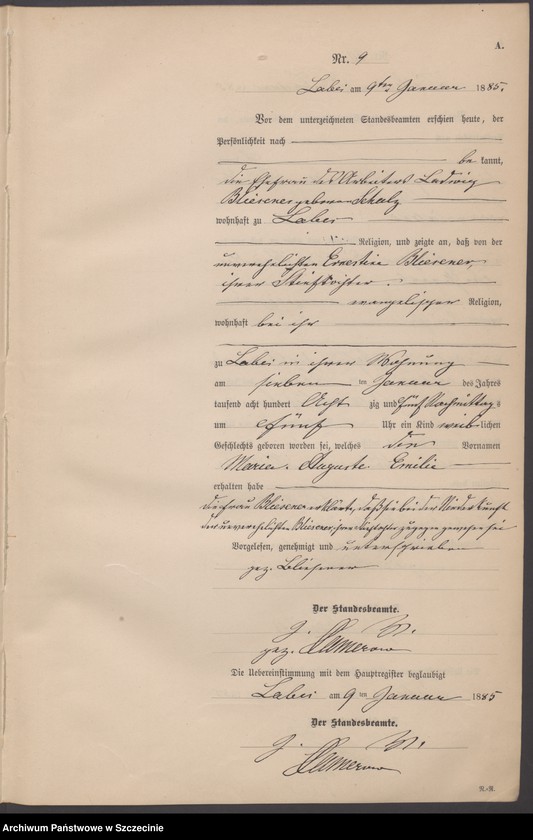 A.
Nr. 9
Labes am 9ten Januar 1885.
Vor dem unterzeichneten Standesbeamten erschien heute, der
Persönlichkeit nach
be kannt,
die Ehefrau des Arbeiters Ludwig
Bliesener geborene Schulz
wohnhaft zu Labes
Religion, und zeigte an, daß von der
unverehelichten Ernestine Bliesener,
ihrer Stieftochter
evangelischer Religion,
wohnhaft bei ihr
zu Labes in ihrer Wohnung
am sieben ten Januar des Jahres
tausend acht hundert Acht zig und fünf Nachmittags
um fünf Uhr ein Kind weiblichen
Geschlechts geboren worden sei, welches den Vornamen
Marie Auguste Emilie
erhalten habe
die Frau Bliesener erklärte, daß sie bei der Niederkunft
der unverehelichten Bliesener, zugegen gewesen sei
Vorgelesen, genehmigt und unterschrieben
gez. Bliesener
Der Standesbeamte.
gez.
Die Uebereinstimmung mit dem Hauptregister beglaubigt
Labes am 9 ten Januar 1885
Der Standesbeamte.
R.-R.
Archiwum Państwowe w Szczecinie